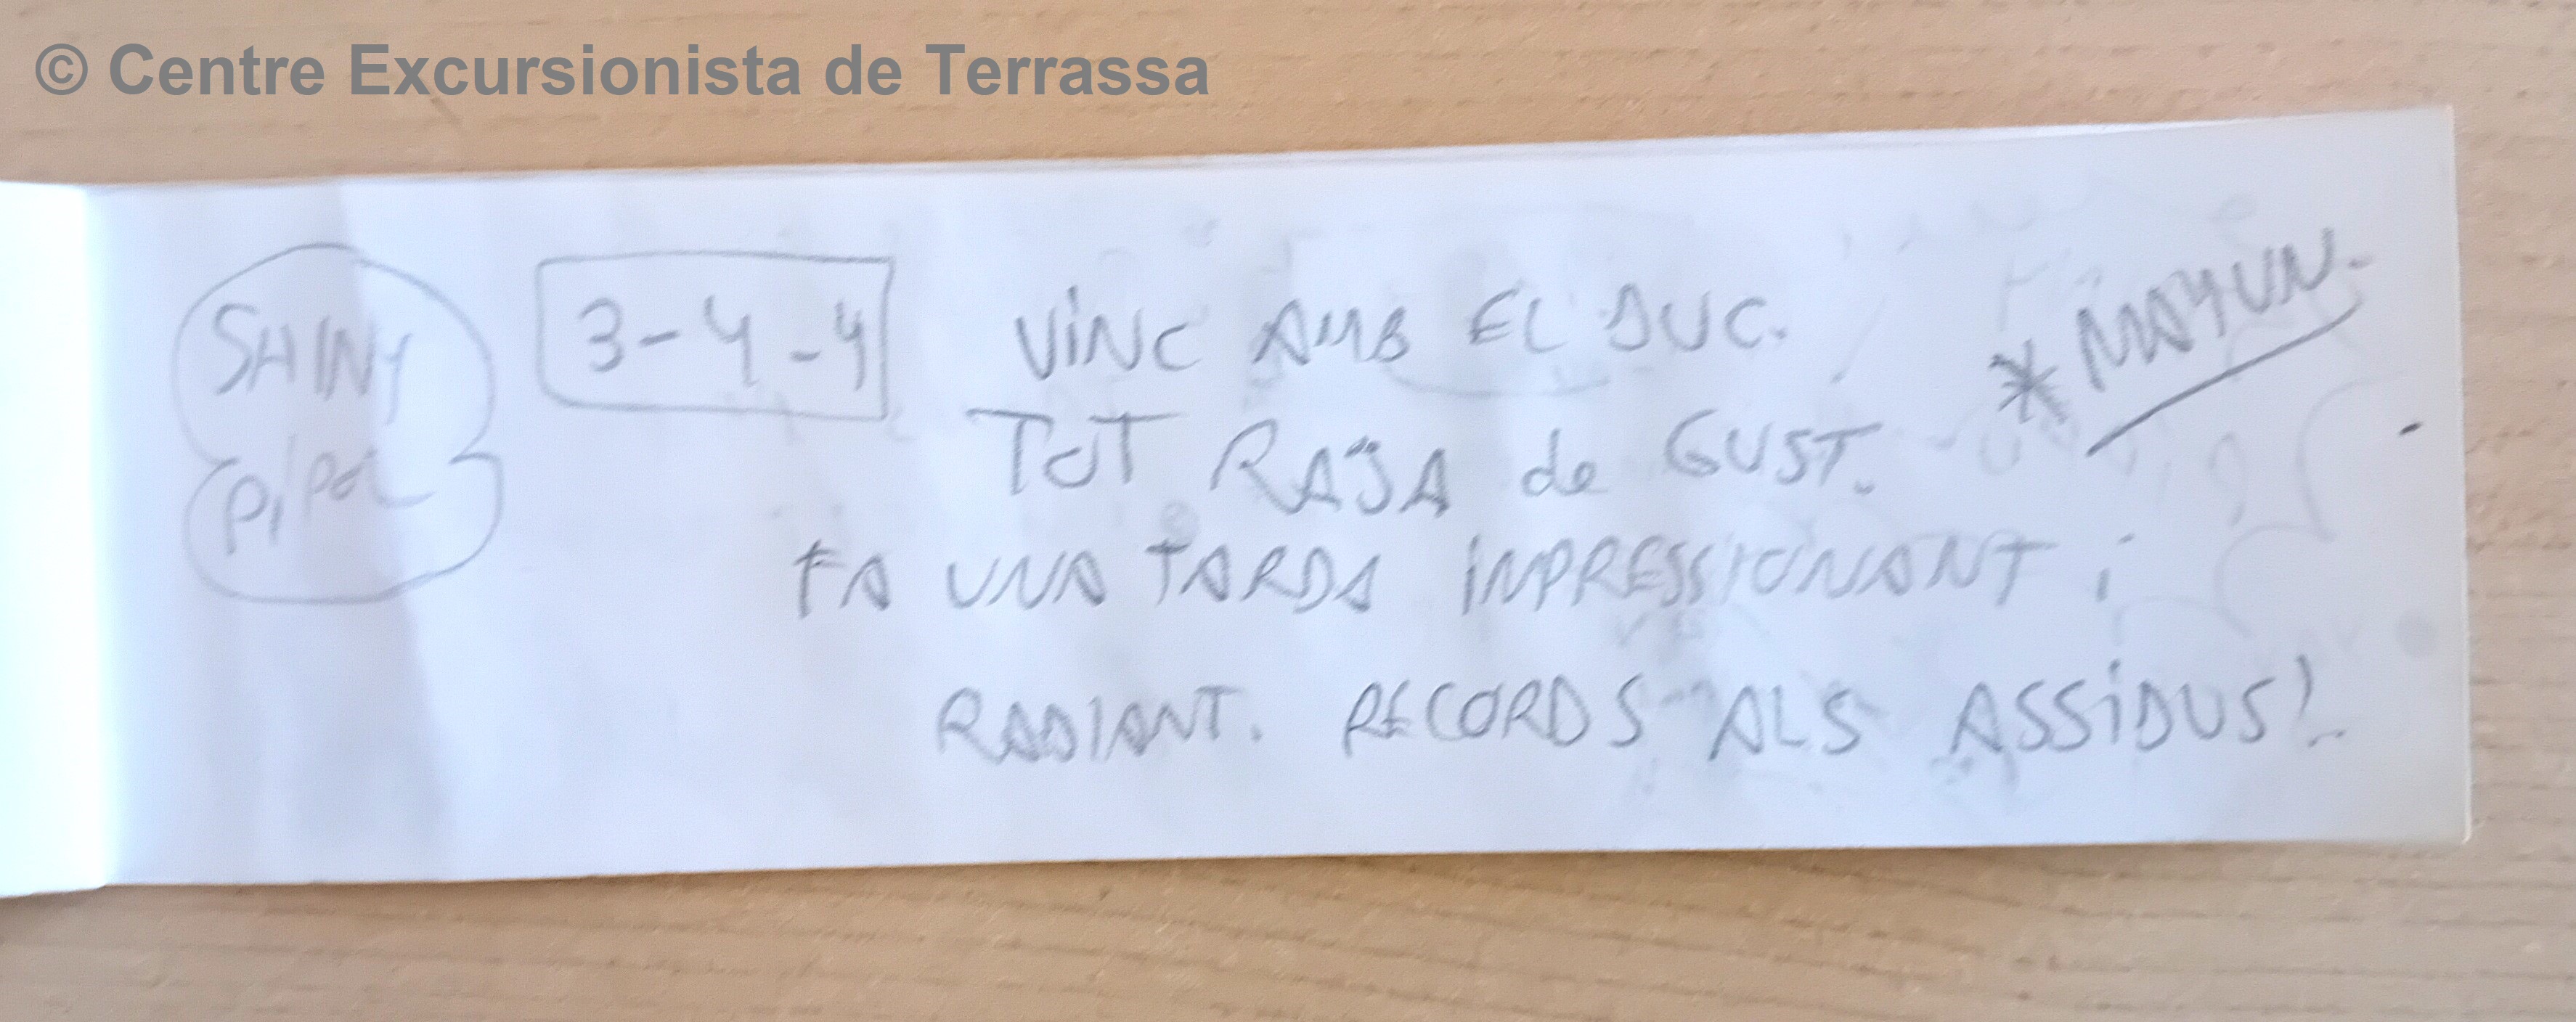 © Centre Excursionista de Terrassa
SHINY
PIPOL
3-4-4
VINC AMB EL DUC.
* MAYUN.
TOT RAJA de GUST.
FA UNA TARDA IMPRESSIONANT i
RADIANT. RECORDS ALS ASSIDUS!